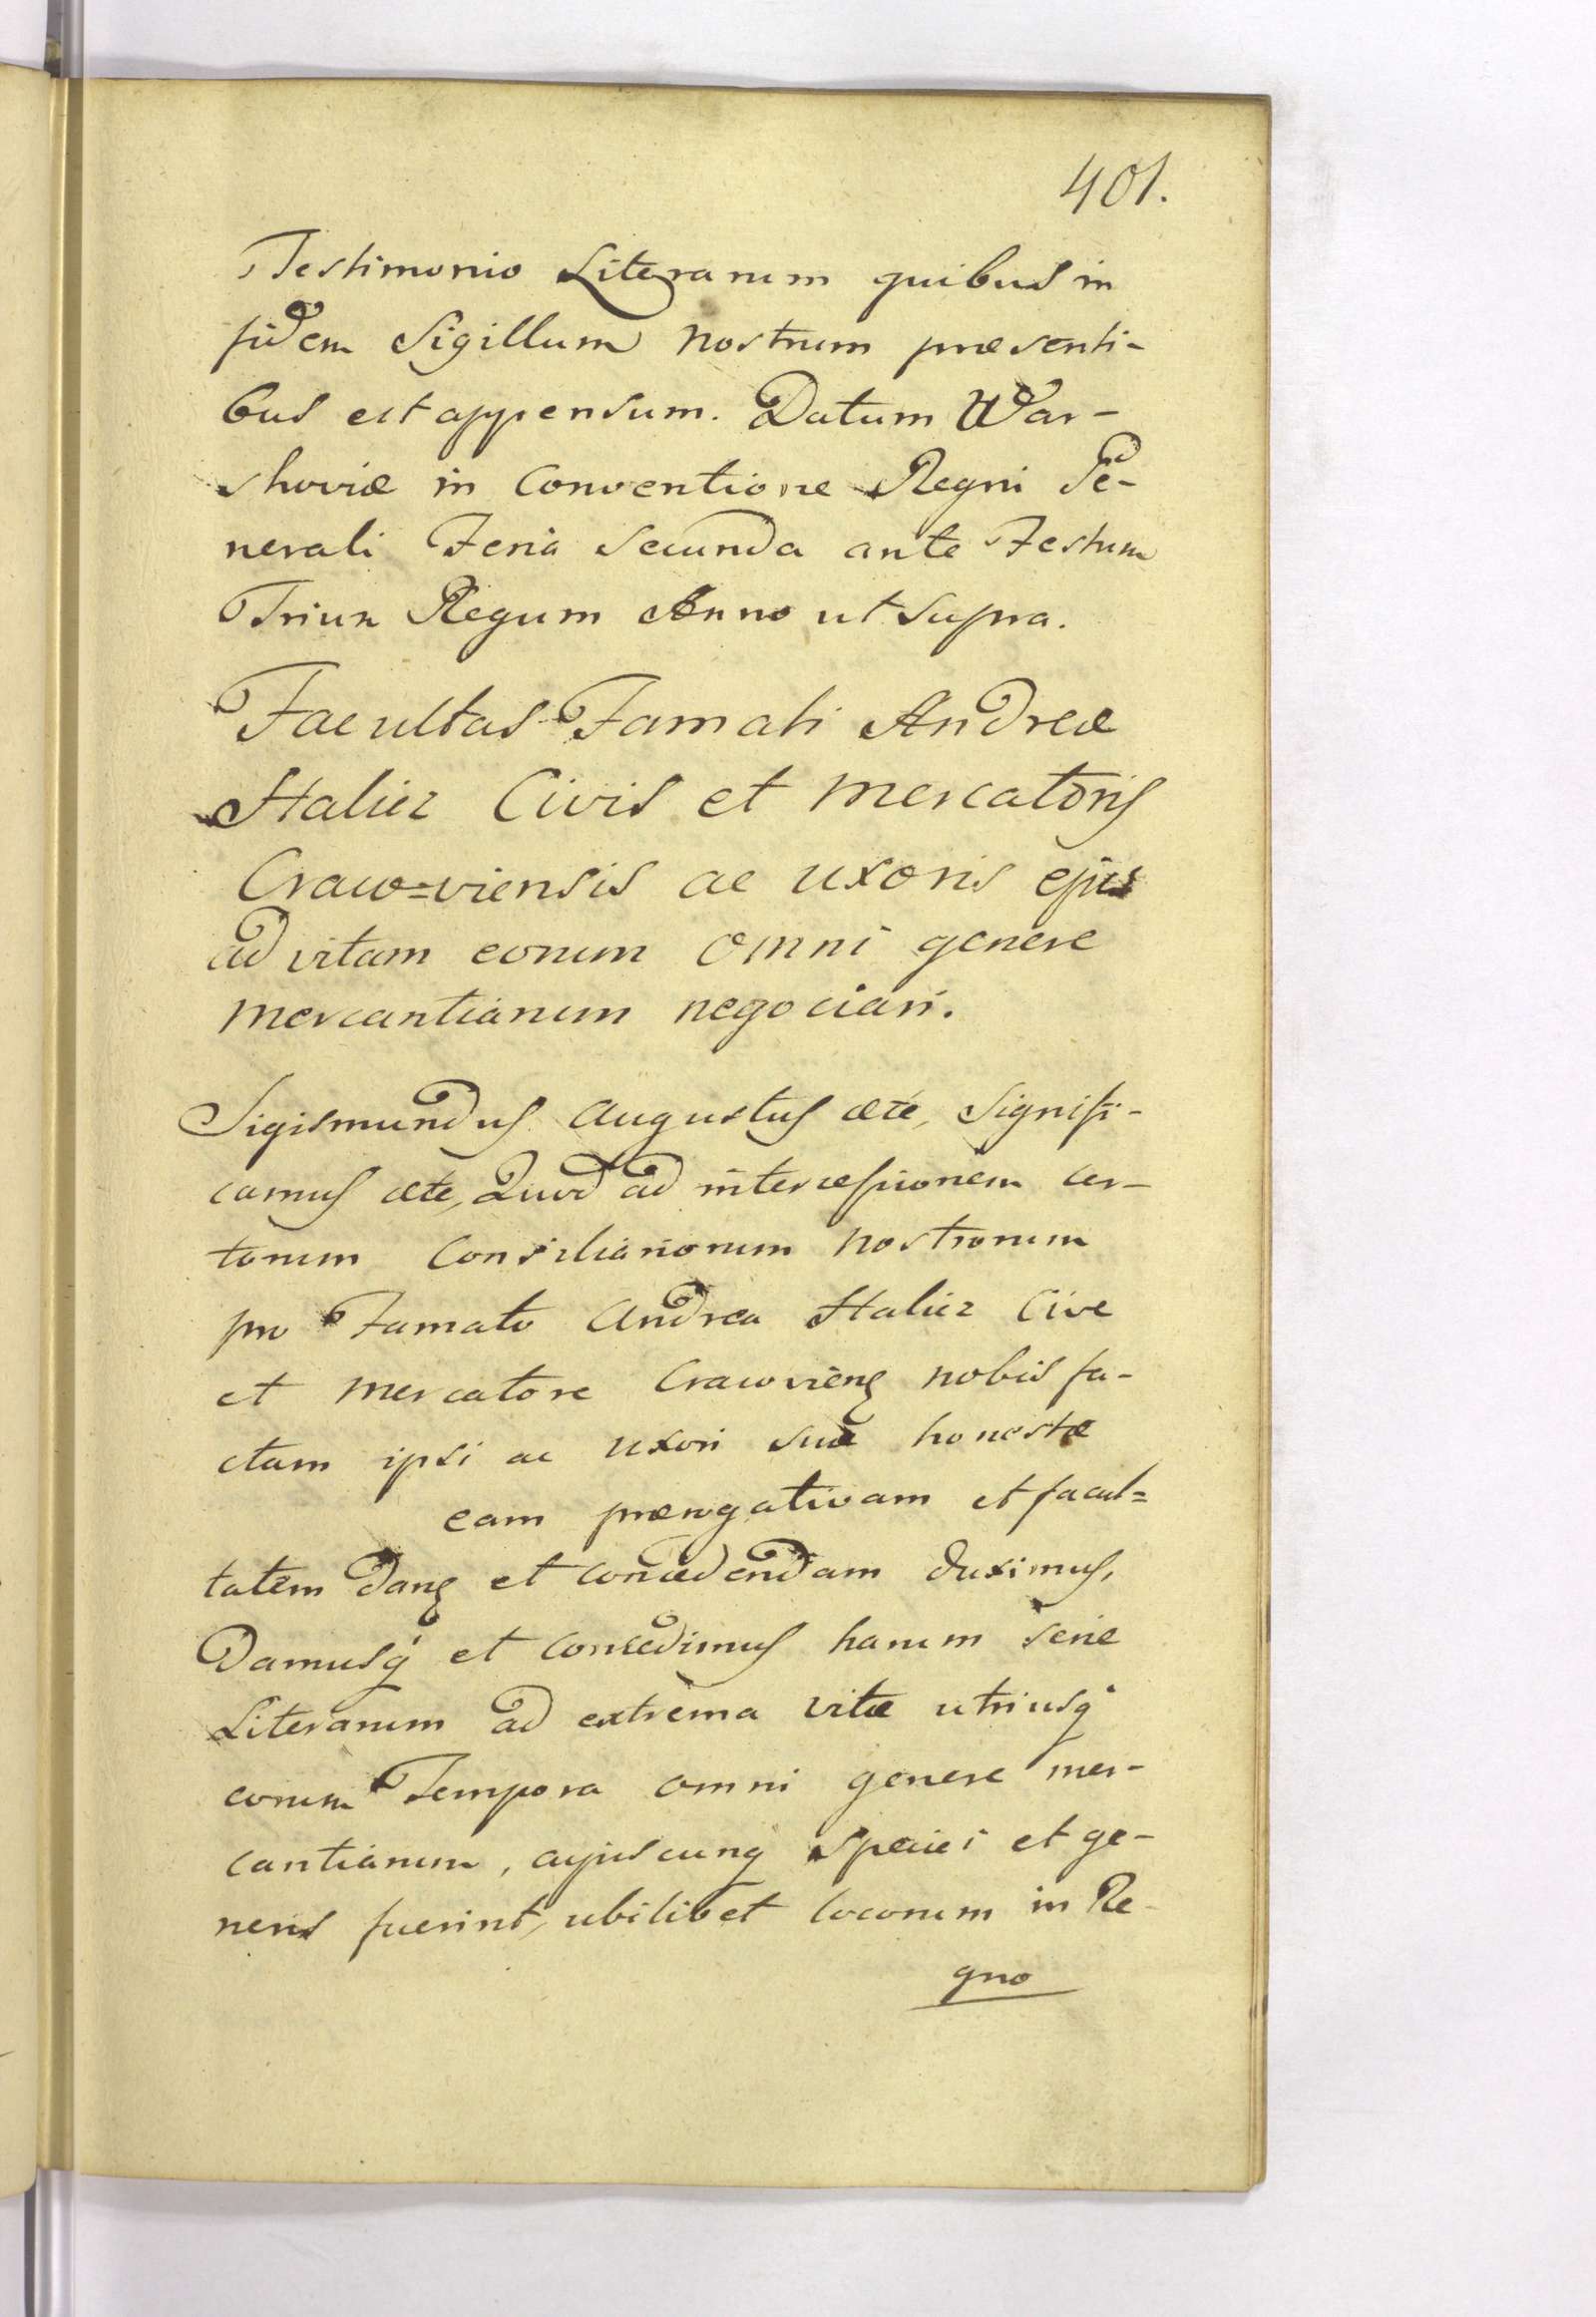 401.
Testimonio Literarum quibus in
fidem Sigillum nostrum præsenti-
bus est appensum. Datum War-
shoviæ in Conventione Regni Ge-
nerali Feria Secunda ante Festum
Trium Regum Anno ut supra.
Facultas Famati Andreæ
Stalicz Civis et Mercatoris
Craco=viensis ac uxoris ejus
ad vitam eorum omni genere
mercantiarum negociari.
Sigismundus Augustus ætc, Signifi-
camus ætc, Quod ad intercessionem cer-
torum Consiliariorum nostrorum
pro Famato Andrea Stalicz Cive
et Mercatore Cracovieng nobis fa-
ctam ipsi ac uxori suæ honestæ
eam prærogativam et facul=
tatem dang et concedendam duximus,
Damusq et concedimus harum serie
Literarum ad extrema vitæ utriusq
eorum Tempora omni genere mer-
cantiarum, cujuscunq speciei et ge-
neris fuerint, ubilibet locorum in Re-
gno